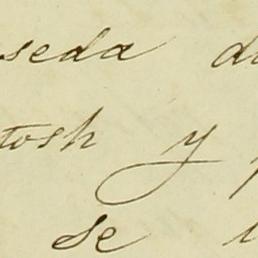 seda
tosh y
se